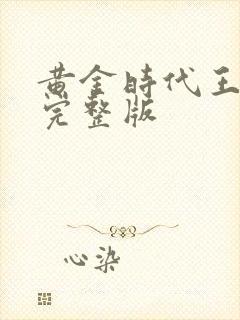 黄金時代王
完整版
心染